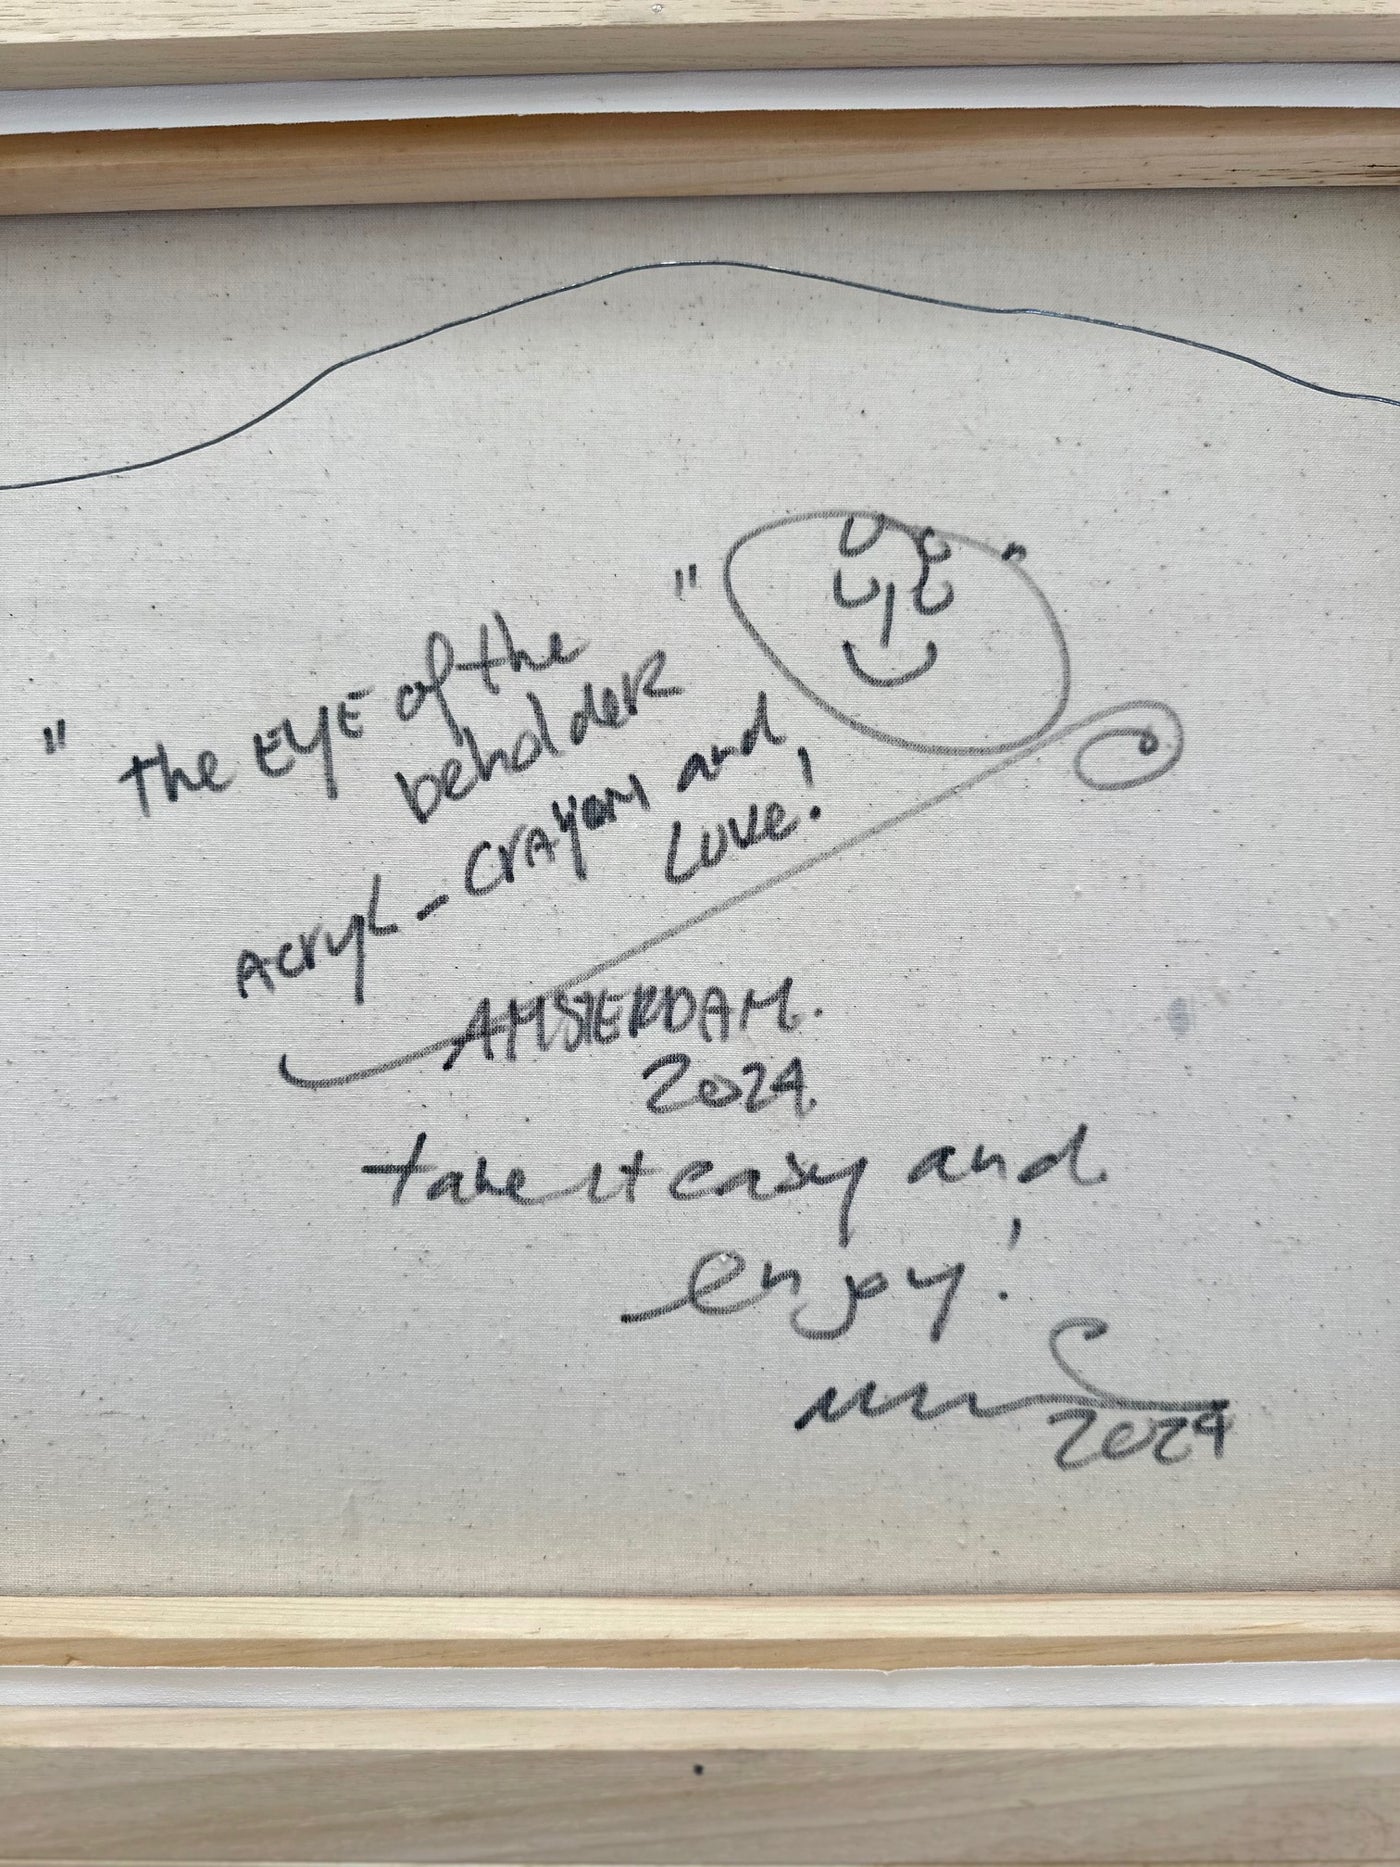 "the EYE of the
beholder"
Acryl - Crayon and
Love!
AMSTERDAM.
2024
take it easy and
enjoy!
2024